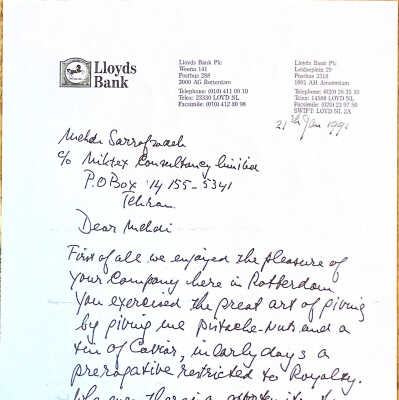 Lloyds
Bank
Lloyds Bank Plc
Weena 141
Postbus 288
3000 AG Rotterdam
Telephone: (010) 411 09 10
Telex: 23330 LOYD NL
Facsimile: (010) 412 80 98
Lloyds Bank Plc
Leidseplein 29
Postbus 3518
1001 AH Amsterdam
Telephone: (020) 26 35 35
Telex: 14508 LOYD NL
Facsimile: (020) 22 97 50
SWIFT: LOYD NL 2A
21th Jan 1991
Mehdi
c/o Miktex Consultancy limited
P.O Box 14 155-5341
Tehran
Dear Mehdi
First of all we enjoyed the pleasure of
your Company here in Rotterdam
You exercised the great art of giving
by giving me pistache-nuts and a
tin of Caviar, in early days a
prerogative restricted to Royalty.
there is